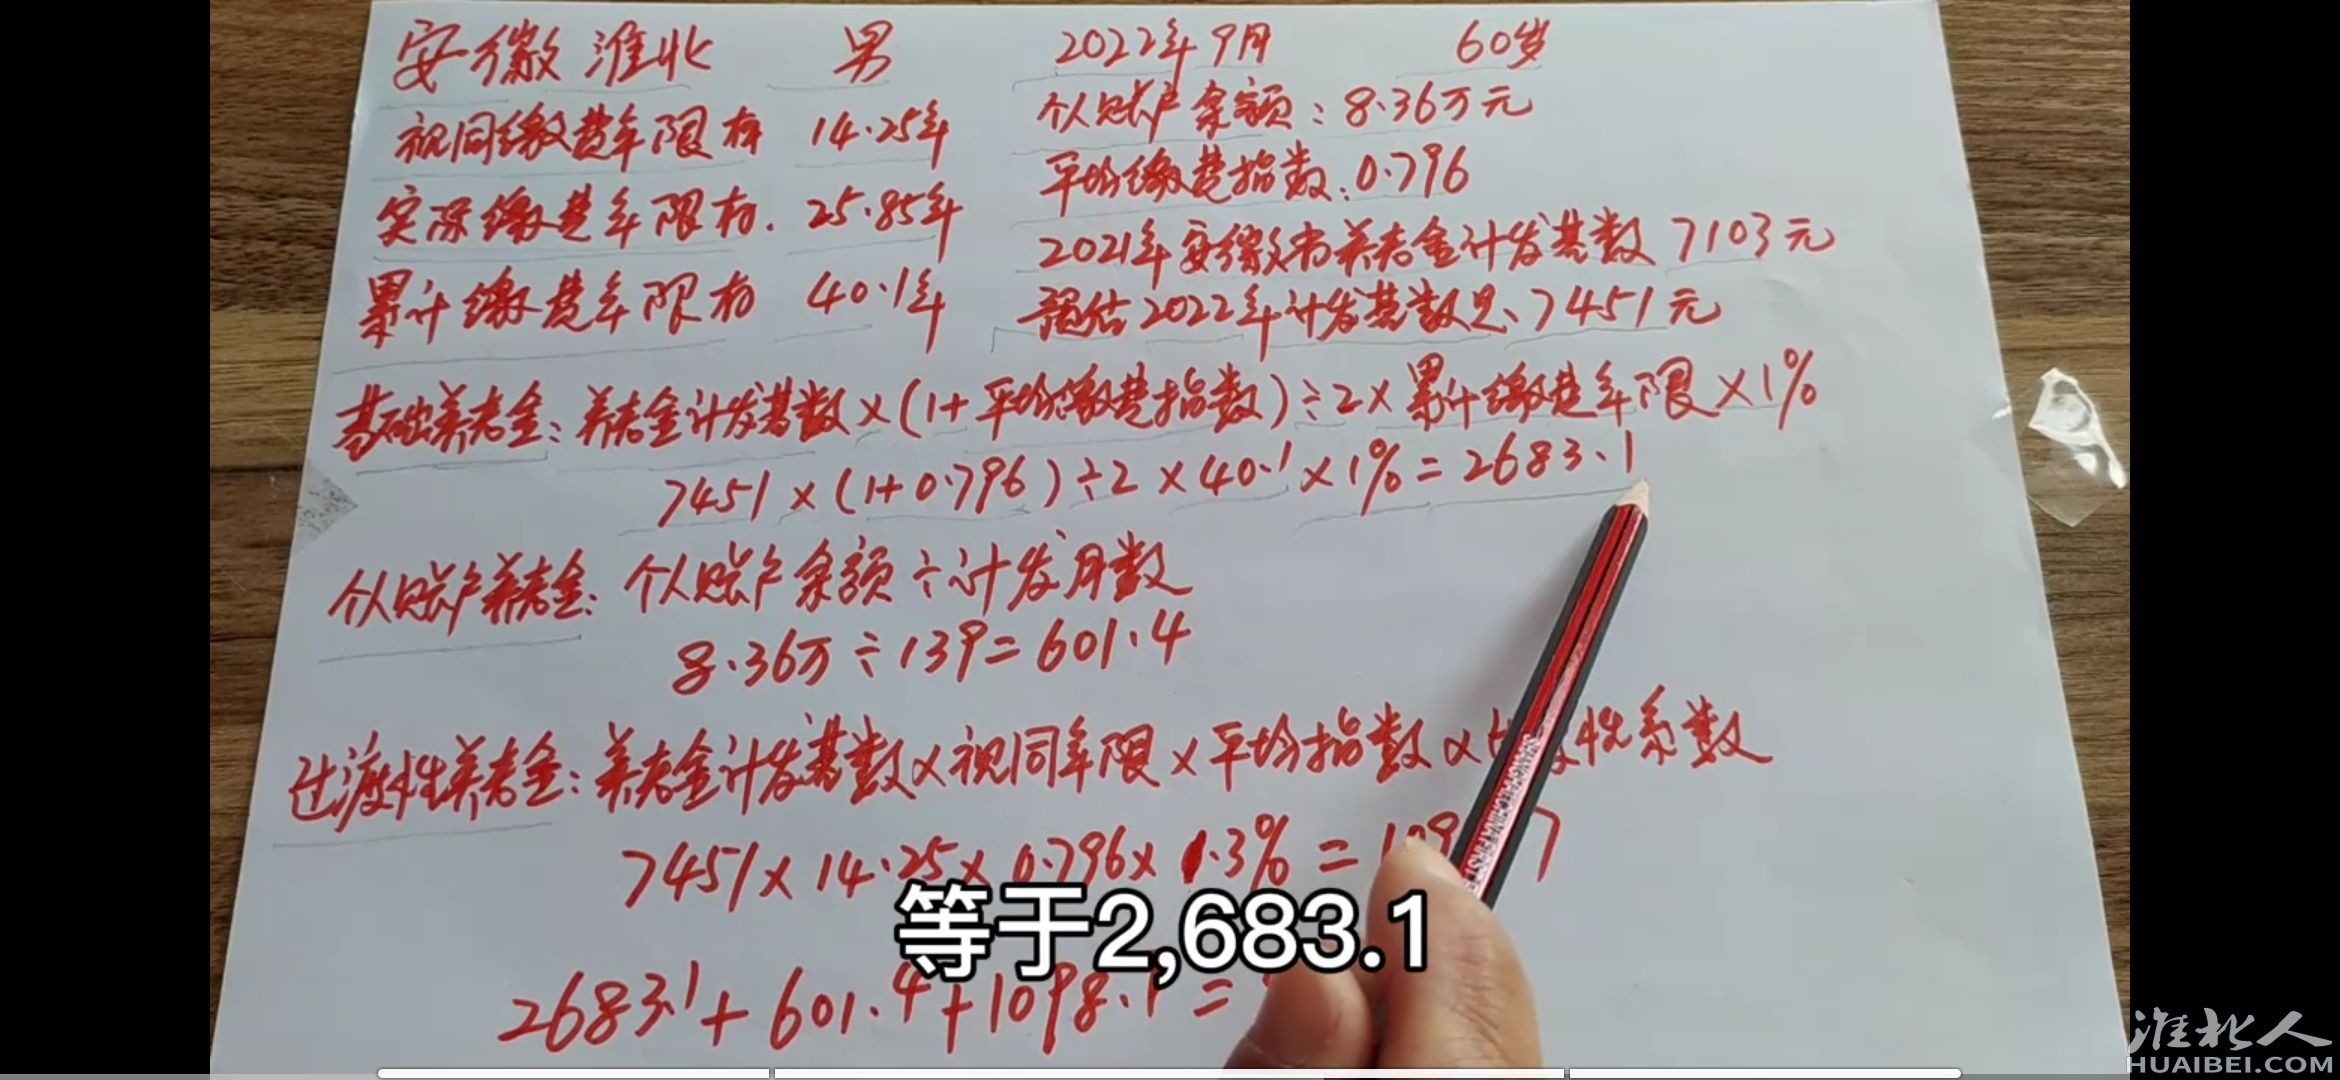 安徽 淮北 男 2022年9月 60岁
视同缴费年限有 14.25年
个人账户余额：8.36万元
平均缴费指数：0.796
实际缴费年限有. 25.85年
2021年安徽省养老金计发基数 7103元
累计缴费年限有 40.1年
预估2022年计发基数是、7451元
基础养老金：养老金计发基数×(1+平均缴费指数)÷2×累计缴费年限×1%
7451×(1+0.796)÷2×40.1×1%=2683.1
个人账户养老金：个人账户余额÷计发月数
8.36万÷139=601.4
过渡性养老金：养老金计发基数×视同年限×平均指数×性系数
7451×14.25×0.796×1.3%=109 7
等于2,683.1
2683.1+601.4+1098.=
淮北人
HUAIBEI.COM